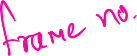 frame no.